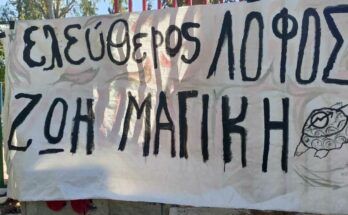 ελεύθερος ΛΟΦΟΣ
ΖΩΗ ΜΑΓΙΚΗ